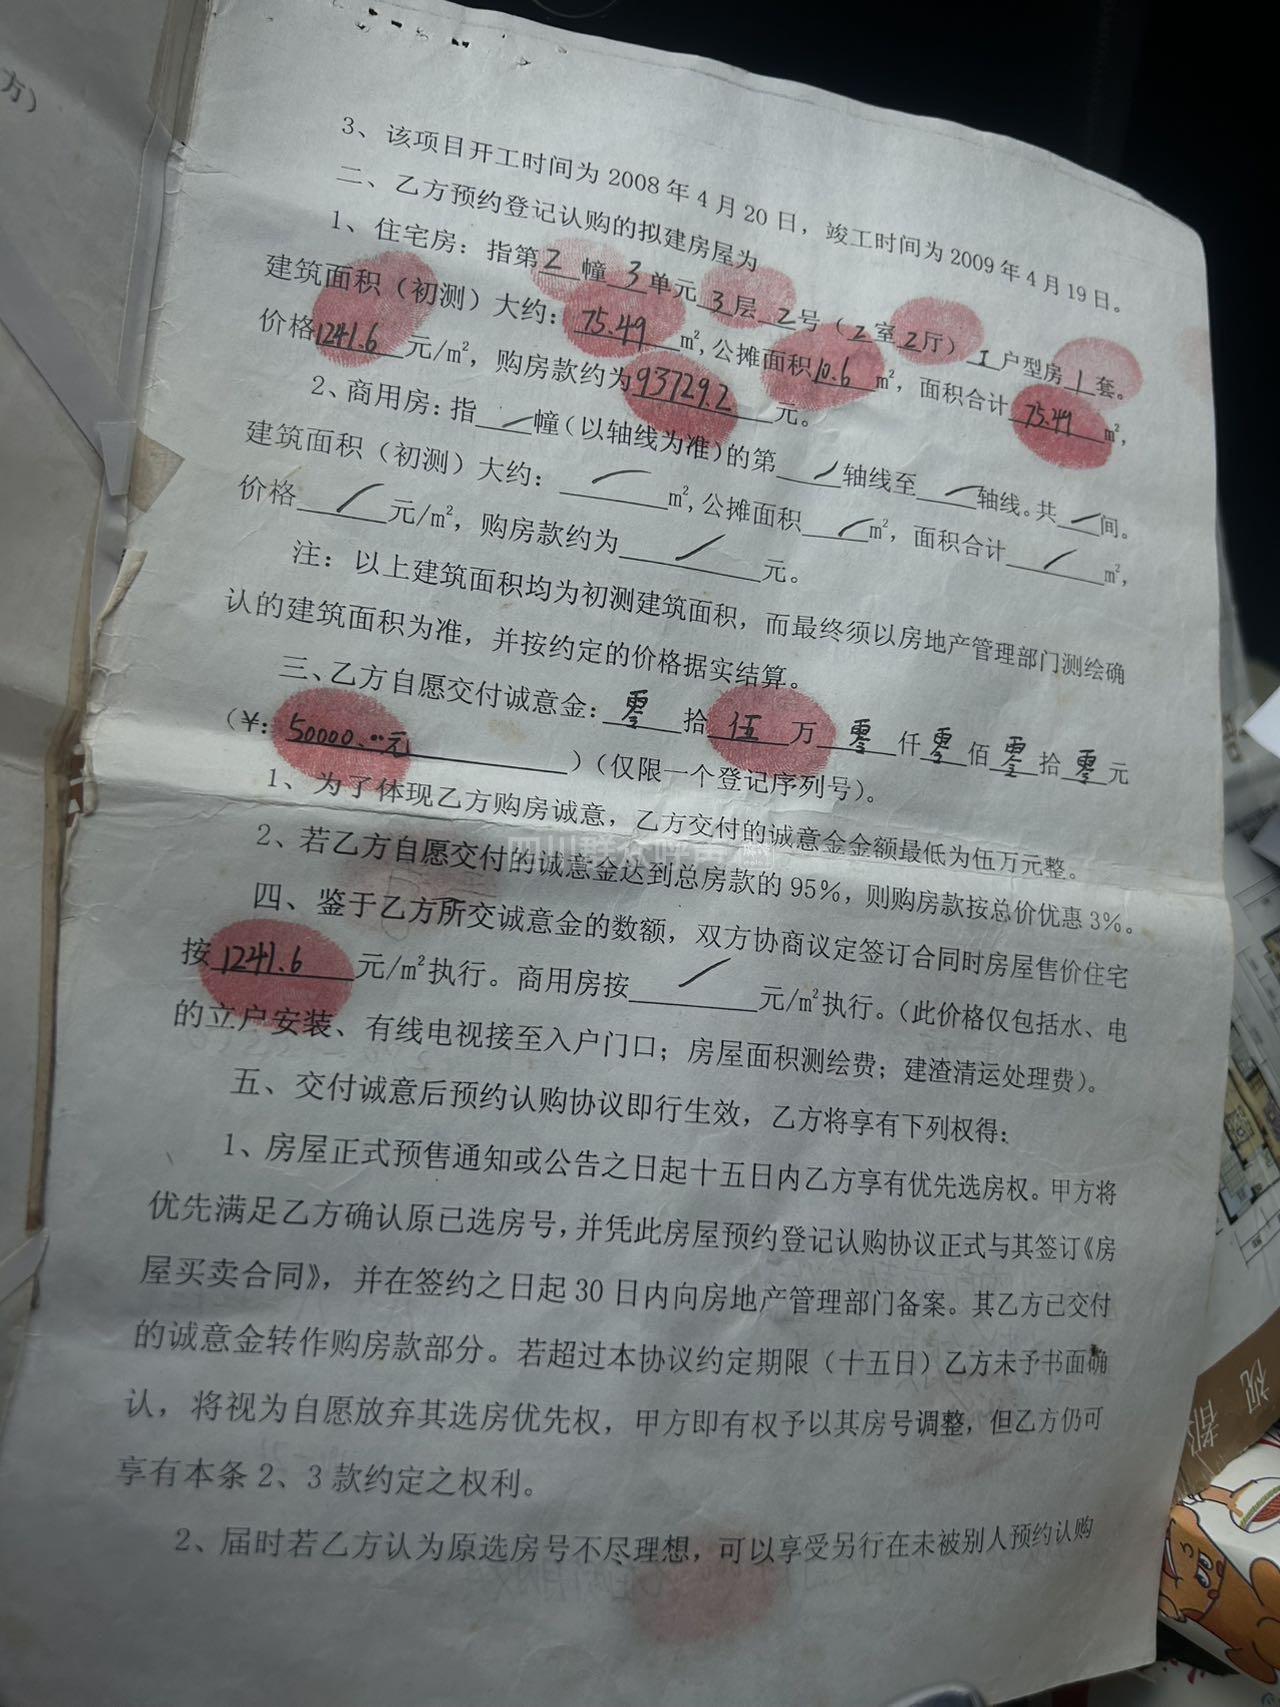 方）
3、该项目开工时间为 2008 年 4 月 20 日，竣工时间为 2009 年 4 月 19 日。
二、乙方预约登记认购的拟建房屋为
1、住宅房：指第 2 幢 3 单元 3 层 2 号（2 室 2 厅）I 户型房 1 套。
建筑面积（初测）大约：75.49 m²,公摊面积 10.6 m²，面积合计 75.49 m²，
价格 1241.6 元/m²，购房款约为 93729.2 元。
2、商用房：指 / 幢（以轴线为准）的第 / 轴线至 / 轴线。共 / 间。
建筑面积（初测）大约： / m²,公摊面积 / m²，面积合计 / m²，
价格 / 元/m²，购房款约为 / 元。
注：以上建筑面积均为初测建筑面积，而最终须以房地产管理部门测绘确
认的建筑面积为准，并按约定的价格据实结算。
三、乙方自愿交付诚意金：零 拾 伍 万 零 仟 零 佰 零 拾 零 元
（¥：50000.00元）（仅限一个登记序列号）。
1、为了体现乙方购房诚意，乙方交付的诚意金金额最低为伍万元整。
2、若乙方自愿交付的诚意金达到总房款的 95%，则购房款按总价优惠 3%。
四、鉴于乙方所交诚意金的数额，双方协商议定签订合同时房屋售价住宅
按 1241.6 元/m²执行。商用房按 / 元/m²执行。（此价格仅包括水、电
的立户安装、有线电视接至入户门口；房屋面积测绘费；建渣清运处理费）。
五、交付诚意后预约认购协议即行生效，乙方将享有下列权得：
1、房屋正式预售通知或公告之日起十五日内乙方享有优先选房权。甲方将
优先满足乙方确认原已选房号，并凭此房屋预约登记认购协议正式与其签订《房
屋买卖合同》，并在签约之日起 30 日内向房地产管理部门备案。其乙方已交付
的诚意金转作购房款部分。若超过本协议约定期限（十五日）乙方未予书面确
认，将视为自愿放弃其选房优先权，甲方即有权予以其房号调整，但乙方仍可
享有本条 2、3 款约定之权利。
2、届时若乙方认为原选房号不尽理想，可以享受另行在未被别人预约认购